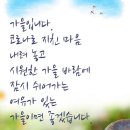 가을입니다
코로나로 지친 마음
내려 놓고
시원한 가을 바람에
잠시 쉬어가는
여유가 있는
가을이면 좋겠습니다